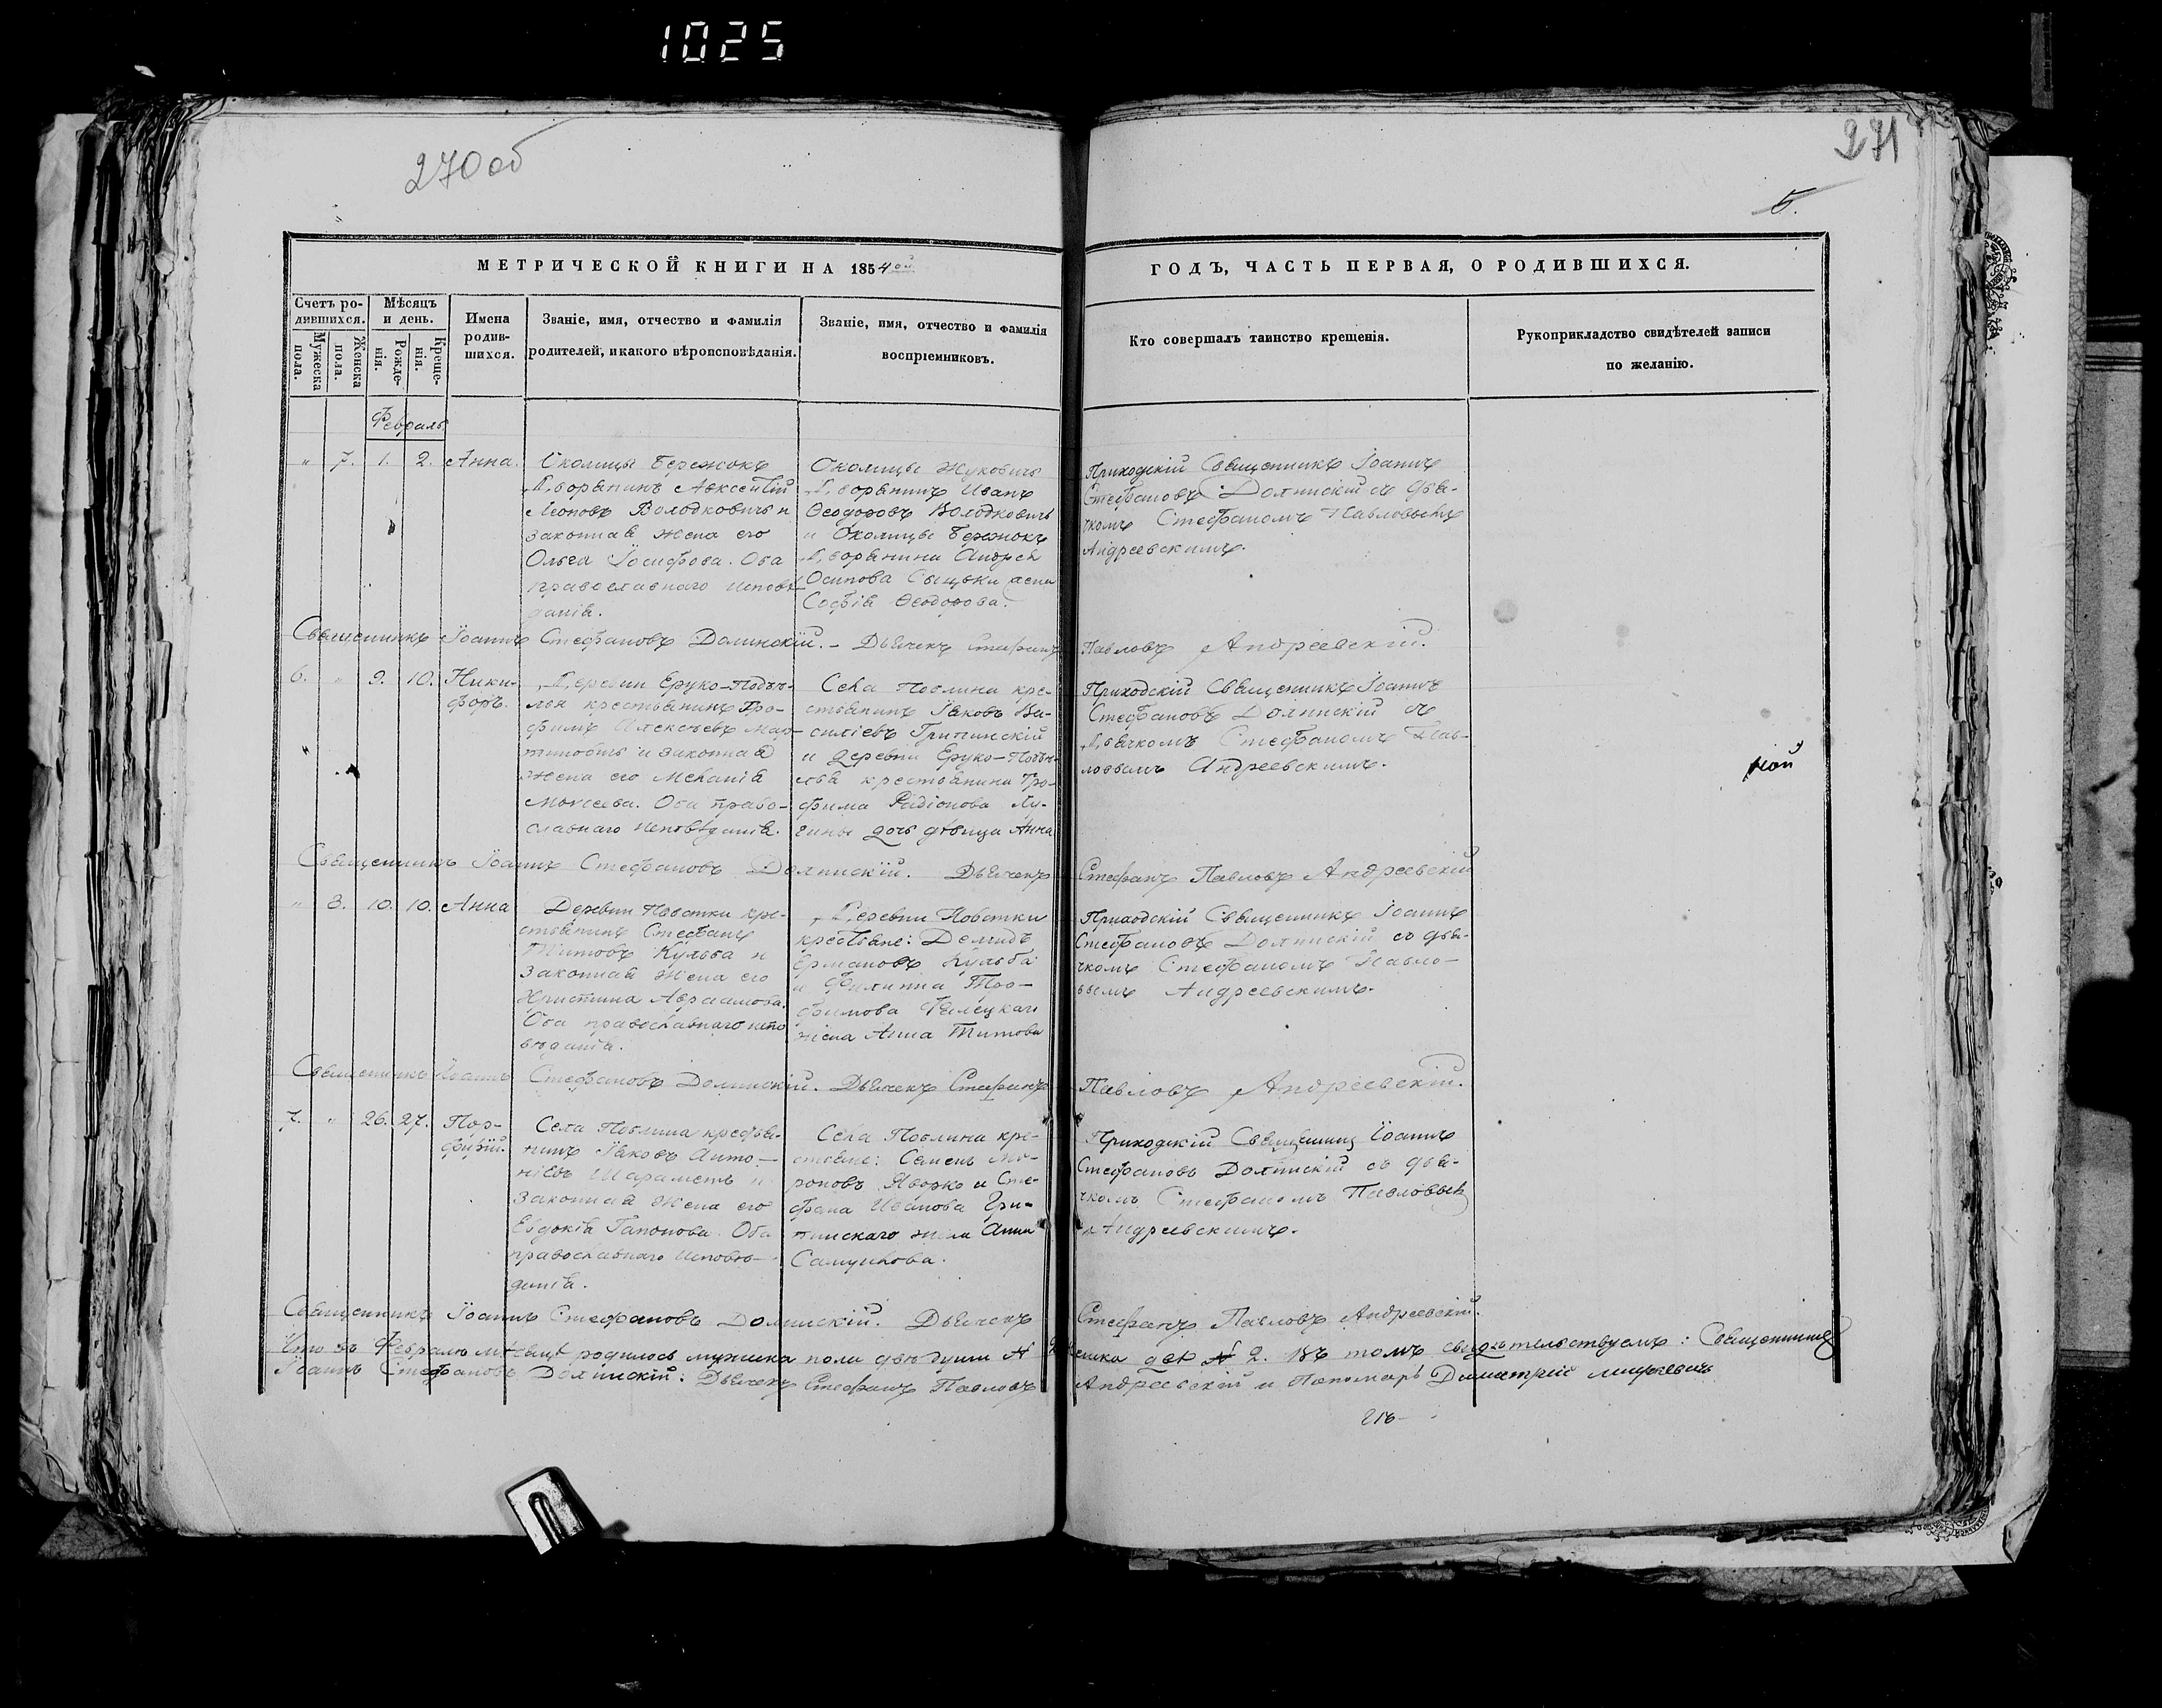 1025
270 об
271
5.
МЕТРИЧЕСКОЙ КНИГИ НА 1854 ой
ГОДЪ, ЧАСТЬ ПЕРВАЯ, О РОДИВШИХСЯ.
Счетъ ро-
дившихся.
Мужеска
пола.
Женска
пола.
Мѣсяцъ
и день.
Рожде-
нія.
Креще-
нія.
Имена
родив-
шихся.
Званіе, имя, отчество и фамилія
родителей, и какого вѣроисповѣданія.
Званіе, имя, отчество и фамилія
воспріемниковъ.
Кто совершалъ таинство крещенія.
Рукоприкладство свидѣтелей записи
по желанію.
Февраль
" 7. 1. 2. Анна.
Околицы Бережокъ
Дворянинъ Авксентій
Володковичъ и
законная жена его
Ольга Іосифова. Оба
православнаго исповѣ-
данія.
Околицы Жуковичъ
Дворянинъ Иванъ
Ѳеодоровъ Володковичъ
и Околицы Бережокъ
Дворянина Андрея
Осипова жена
Софія Ѳеодорова.
Приходскій Священникъ Іоаннъ
Стефановъ Долинскій съ дья-
чкомъ Стефаномъ Павловымъ
Андреевскимъ.
Священникъ Іоаннъ Стефановъ Долинскій. - Дьячекъ Стефанъ Павловъ Андреевскій.
6. " 9. 10. Ники-
форъ.
Деревни
крестьянинъ Тро-
фимъ Алексѣевъ Мар-
и законная
жена его Меланія
Моисеева. Оба право-
славнаго исповѣданія.
Села Поблина кре-
стьянинъ Іаковъ Ва-
силіевъ Грипинскій
и деревни
крестьянина Тро-
фима Радіонова
дочь дѣвица Анна
Приходскій Священникъ Іоаннъ
Стефановъ Долинскій съ
Дьячкомъ Стефаномъ Пав-
ловымъ Андреевскимъ.
кой
Священникъ Іоаннъ Стефановъ Долинскій. Дьячекъ Стефанъ Павловъ Андреевскій
" 8. 10. 10. Анна
Деревни Новотки кре-
стьянинъ Стефанъ
Титовъ Кульба и
законная жена его
Христина Авраамова.
Оба православнаго испо
вѣданія.
Деревни Новотки
крестьяне: Демидъ
Ермановъ Кульба
и Филиппа Тро-
фимова
жена Анна Титова
Приходскій Священникъ Іоаннъ
Стефановъ Долинскій съ дья-
чкомъ Стефаномъ Павло-
вымъ Андреевскимъ.
Священникъ Іоаннъ Стефановъ Долинскій. Дьячекъ Стефанъ Павловъ Андреевскій.
7. " 26. 27. Пор-
фирій.
Села Поблина крестья-
нинъ Іаковъ Анто-
ніевъ Шараметъ и
законная жена его
Евдокія Гапонова. Оба
православнаго исповѣ-
данія.
Села Поблина кре-
стьяне: Семенъ Ми-
роновъ Яворко и Сте-
фана Иванова Гри-
пинскаго жена Анна
Самуилова.
Приходскій Священникъ Іоаннъ
Стефановъ Долинскій съ дья-
чкомъ Стефаномъ Павловымъ
Андреевскимъ.
Священникъ Іоаннъ Стефановъ Долинскій. Дьячекъ Стефанъ Павловъ Андреевскій.
Что въ Февралѣ мѣсяцѣ родилось мужеска пола двѣ души № 2 женска двѣ № 2. Въ томъ свидѣтельствуемъ: Священникъ
Іоаннъ Стефановъ Долинскій: Дьячекъ Стефанъ Павловъ Андреевскій и Пономарь Димитрій